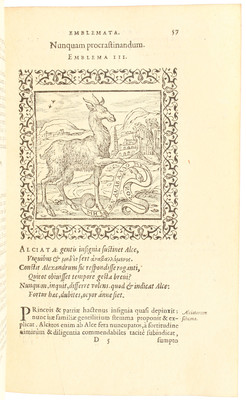 EMBLEMATA. 57
Nunquam procrastinandum.
EMBLEMA III.
ALCIATÆ gentis insignia sustinet Alce,
Vnguibus & μηδὲν fert ἀναβαλλόμενος.
Constat Alexandrum sic respondisse roganti,
Quî tot obiuisset tempore gesta breui?
Nunquam, inquit, differre volens. quod & indicat Alce:
Fortior hæc, dubites, ocyor anne siet.
PRincipis & patriæ hactenus insignia quasi depinxit:
nunc suæ familiæ gentilitium stemma proponit & ex-
plicat. Alciatos enim ab Alce fera nuncupatos, à fortitudine
nimirum & diligentia commendabiles tacitè subindicat,
D 5 sumpto